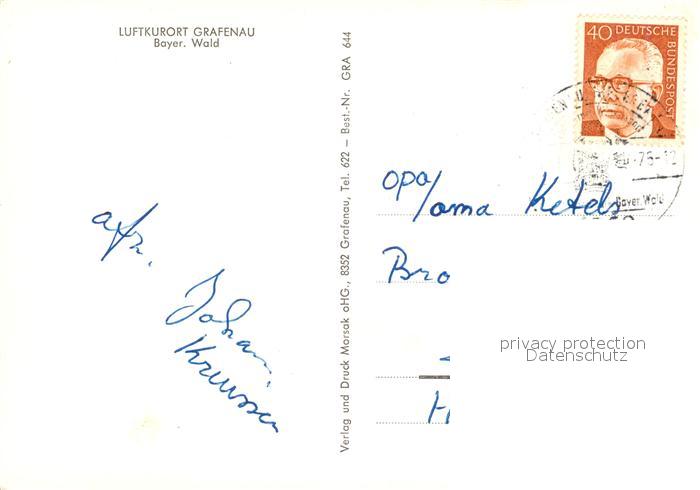 LUFTKURORT GRAFENAU
Bayer. Wald
Verlag und Druck Morsak oHG., 8352 Grafenau, Tel. 622 — Best.-Nr. GRA 644
40 DEUTSCHE BUNDESPOST
75-12
Bayer. Wald
opa/oma Ketels
Bro
H
afz.
Johan
privacy protection
Datenschutz